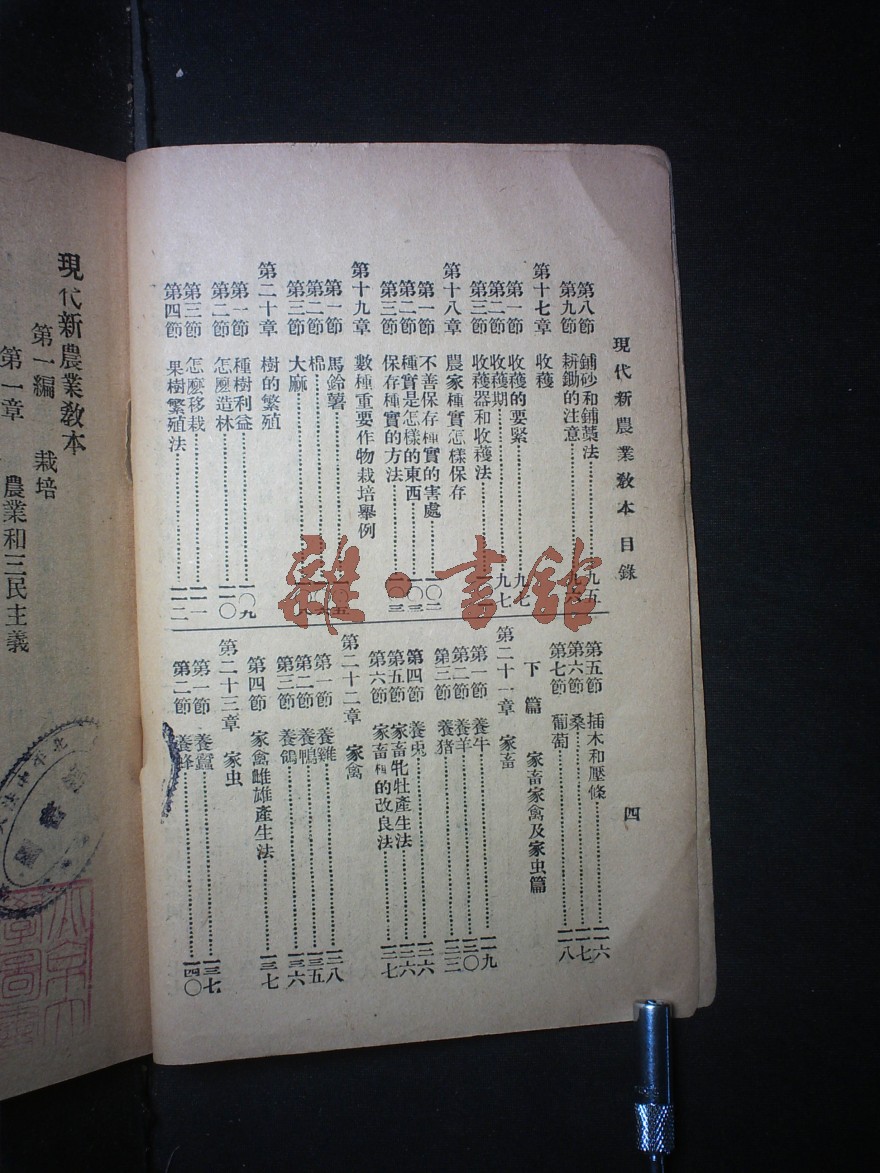 現代新農業教本 目錄
四
第八節 鋪砂和鋪藁法 九五
第九節 耕鋤的注意 九六
第十七章 收穫
第一節 收穫的要緊 九七
第二節 收穫期 九七
第三節 收穫器和收穫法
第十八章 農家種實怎樣保存
第一節 不善保存種實的害處 一〇二
第二節 種實是怎樣的東西 一〇三
第三節 保存種實的方法 一〇三
第十九章 數種重要作物栽培舉例
第一節 馬鈴薯
第二節 棉
第三節 大麻
第二十章 樹的繁殖
第一節 種樹利益 一〇九
第二節 怎麼造林 一一〇
第三節 怎麼移栽 一一一
第四節 果樹繁殖法 一一二
第五節 插木和壓條 一一六
第六節 桑 一一七
第七節 葡萄 一一八
下篇 家畜家禽及家虫篇
第二十一章 家畜
第一節 養牛 一一九
第二節 養羊 一三〇
第三節 養猪 一三三
第四節 養兎 一三六
第五節 家畜牝牡產生法 一三六
第六節 家畜種的改良法 一三七
第二十二章 家禽
第一節 養雞 一三八
第二節 養鴨 一三五
第三節 養鴿 一三六
第四節 家禽雌雄產生法 一三七
第二十三章 家虫
第一節 養蠶 一三七
第二節 養蜂 一四〇
現代新農業教本
第一編 栽培
第一章 農業和三民主義
雜·書館